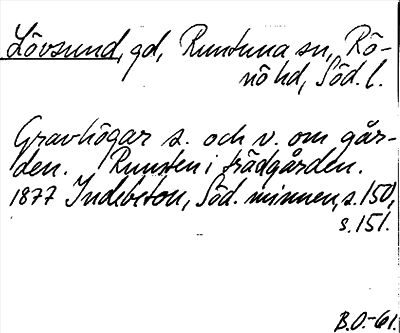 Lövsund, gd, Runtuna sn, Rö-
nö hd, Söd. l.
Gravhögar s. och v. om går-
den. Runsten i trädgården.
1877 Indebetou, Söd. minnen, s. 150,
s. 151.
B.O.-61.